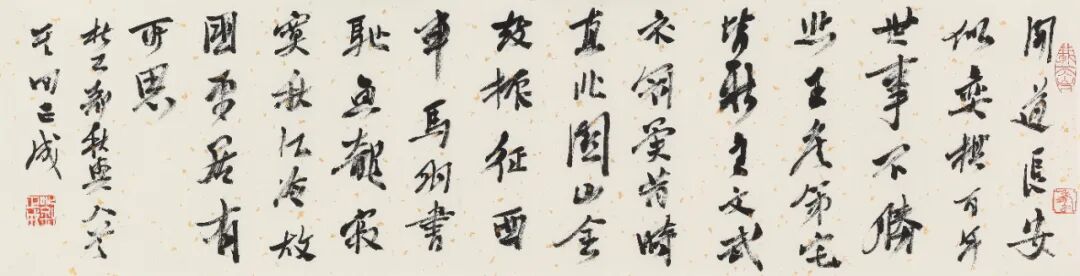 聞道長安
似奕棋百年
世事不勝
悲王侯第宅
皆新主文武
衣冠異昔時
直北關山金
鼓振征西
車馬羽書
馳魚龍寂
寞秋江冷故
國平居有
所思
杜工部秋興八首
其四正成